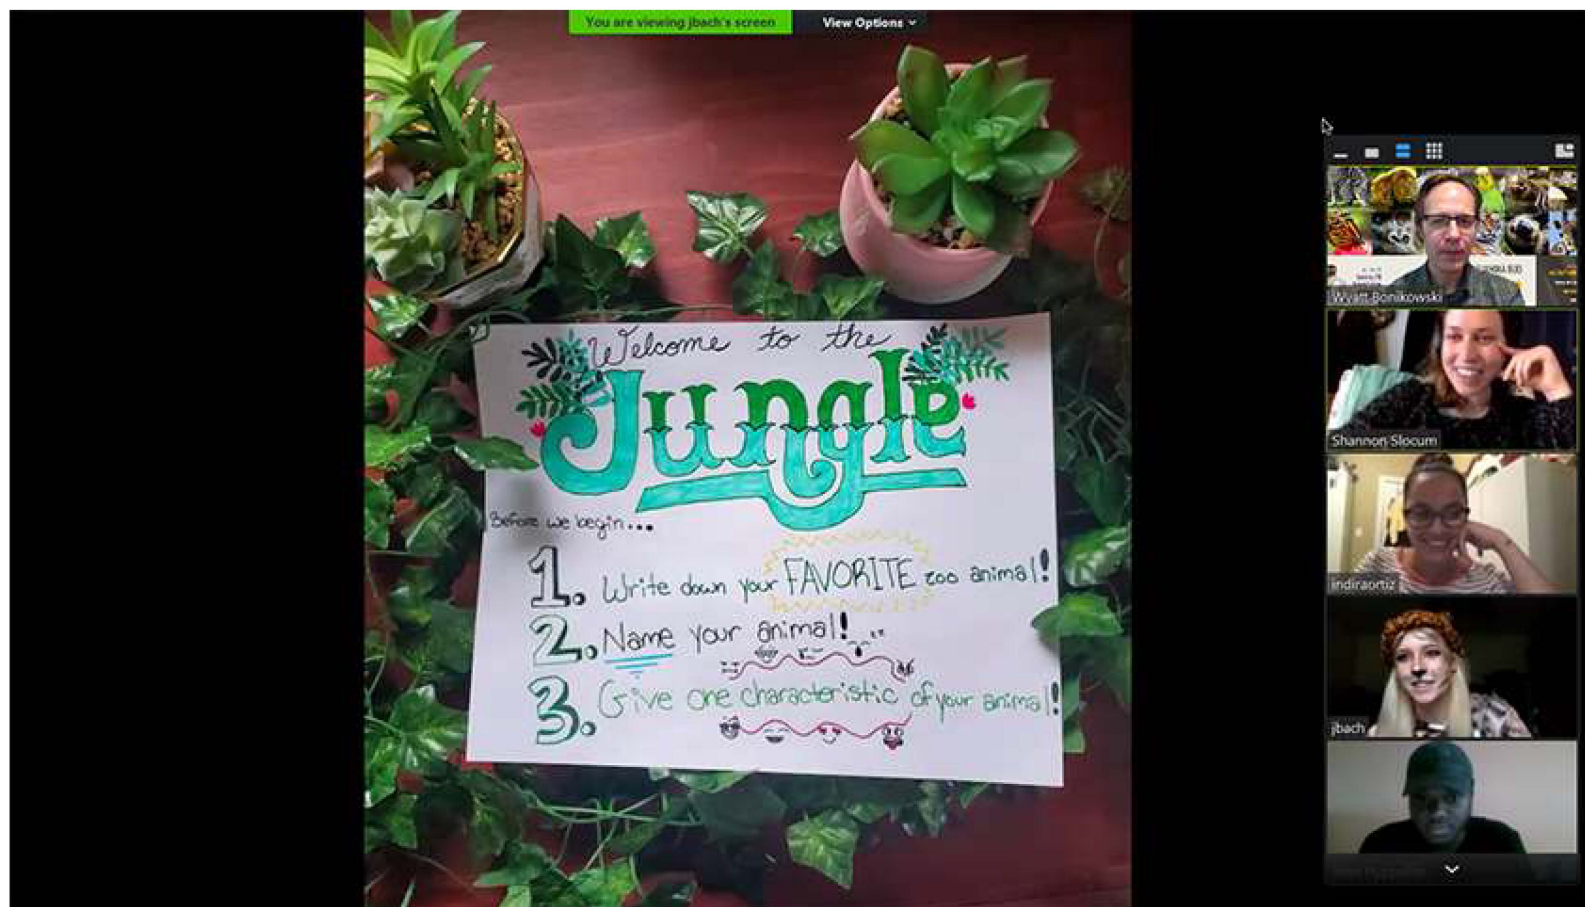 You are viewing jbach's screen
View Options
Welcome to the
Jungle
Before we begin...
1. Write down your FAVORITE zoo animal!
2. Name your animal!
3. Give one characteristic of your animal!
Wyatt Bonikowski
Shannon Slocum
indiraortiz
jbach